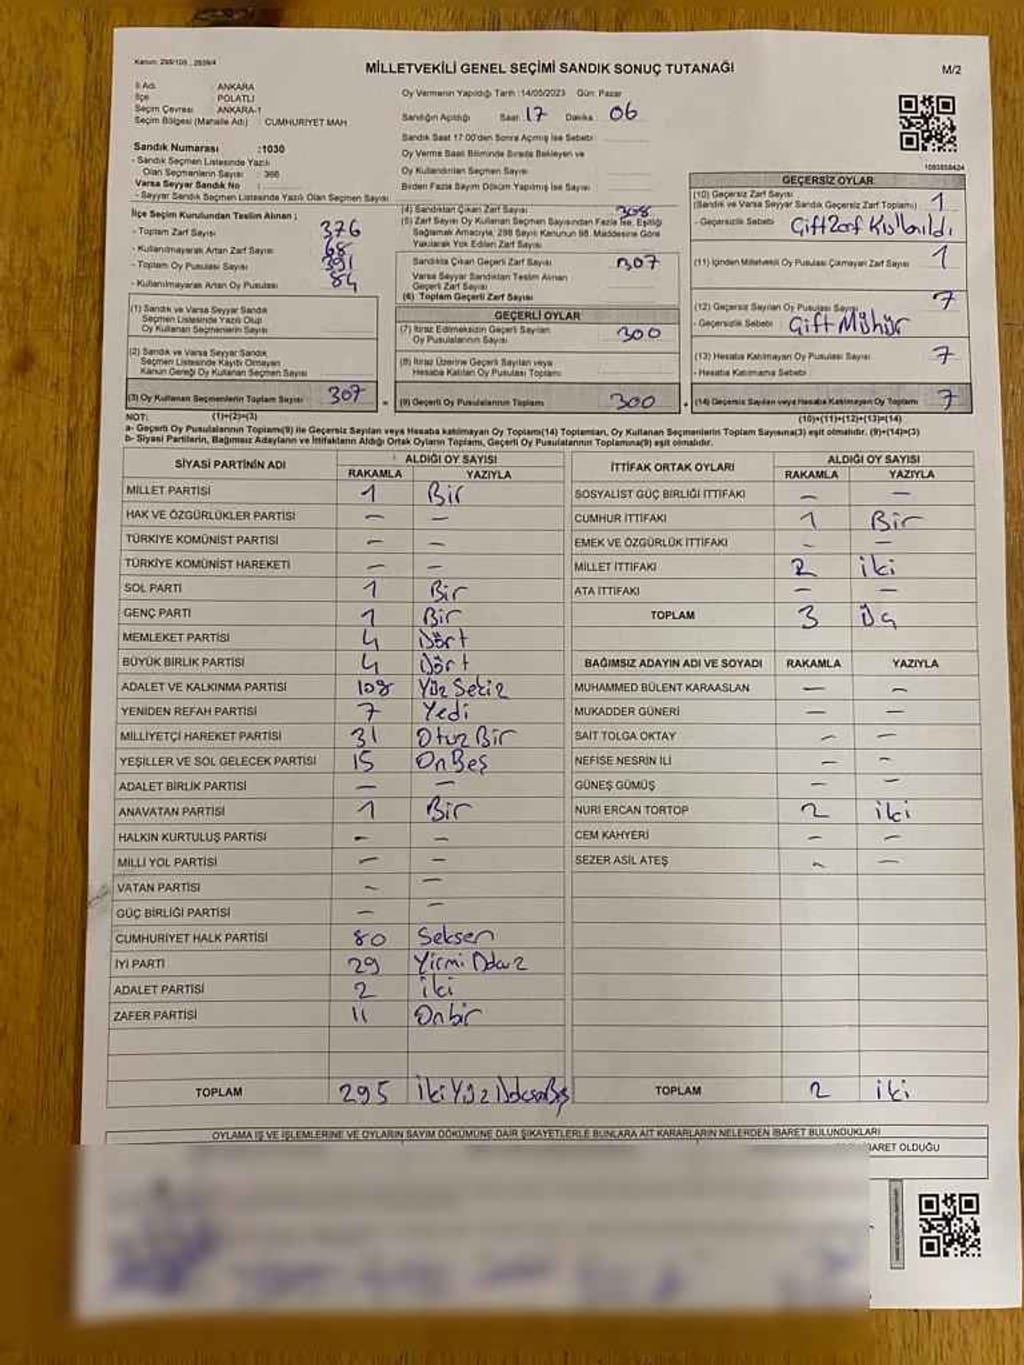 Kanun: 298/105 , 2839/4
MİLLETVEKİLİ GENEL SEÇİMİ SANDIK SONUÇ TUTANAĞI
M/2
İl Adı : ANKARA
İlçe : POLATLI
Seçim Çevresi : ANKARA-1
Seçim Bölgesi (Mahalle Adı) : CUMHURİYET MAH
Oy Vermenin Yapıldığı Tarih :14/05/2023 Gün: Pazar
Sandığın Açıldığı Saat 17 Dakika 06
Sandık Saat 17:00'den Sonra Açımış İse Sebebi
Oy Verme Saati Bitiminde Sırada Bekleyen ve
Oy Kullandırılan Seçmen Sayısı
Birden Fazla Sayım Döküm Yapılmış İse Sayısı
1093858424
Sandık Numarası :1030
- Sandık Seçmen Listesinde Yazılı
Olan Seçmenlerin Sayısı : 366
Varsa Seyyar Sandık No :
- Seyyar Sandık Seçmen Listesinde Yazılı Olan Seçmen Sayısı
İlçe Seçim Kurulundan Teslim Alınan ;
- Toplam Zarf Sayısı 376
- Kullanılmayarak Artan Zarf Sayısı 68
- Toplam Oy Pusulası Sayısı 391
- Kullanılmayarak Artan Oy Pusulası 84
(1) Sandık ve Varsa Seyyar Sandık
Seçmen Listesinde Yazılı Olup
Oy Kullanan Seçmenlerin Sayısı
(2) Sandık ve Varsa Seyyar Sandık
Seçmen Listesinde Kayıtlı Olmayan
Kanun Gereği Oy Kullanan Seçmen Sayısı
(3) Oy Kullanan Seçmenlerin Toplam Sayısı 307
(4) Sandıktan Çıkan Zarf Sayısı 308
(5) Zarf Sayısı Oy Kullanan Seçmen Sayısından Fazla İse, Eşitliği
Sağlamak Amacıyla, 298 Sayılı Kanunun 98. Maddesine Göre
Yakılarak Yok Edilen Zarf Sayısı
Sandıkta Çıkan Geçerli Zarf Sayısı 307
Varsa Seyyar Sandıktan Teslim Alınan
Geçerli Zarf Sayısı
(6) Toplam Geçerli Zarf Sayısı
GEÇERLİ OYLAR
(7) İtiraz Edilmeksizin Geçerli Sayılan
Oy Pusulalarının Sayısı 300
(8) İtiraz Üzerine Geçerli Sayılan veya
Hesaba Katılan Oy Pusulası Toplamı
= (9) Geçerli Oy Pusulalarının Toplamı 300
GEÇERSİZ OYLAR
(10) Geçersiz Zarf Sayısı
(Sandık ve Varsa Seyyar Sandık Geçersiz Zarf Toplamı) 1
- Geçersizlik Sebebi Çift Zarf
(11) İçinden Milletvekili Oy Pusulası Çıkmayan Zarf Sayısı 1
(12) Geçersiz Sayılan Oy Pusulası Sayısı 7
- Geçersizlik Sebebi Çift Mühür
(13) Hesaba Katılmayan Oy Pusulası Sayısı 7
- Hesaba Katılmama Sebebi
+ (14) Geçersiz Sayılan veya Hesaba Katılmayan Oy Toplamı 7
NOT: (1)+(2)=(3)
(10)+(11)+(12)+(13)=(14)
a- Geçerli Oy Pusulalarının Toplamı(9) ile Geçersiz Sayılan veya Hesaba katılmayan Oy Toplamı(14) Toplamları, Oy Kullanan Seçmenlerin Toplam Sayısına(3) eşit olmalıdır. (9)+(14)=(3)
b- Siyasi Partilerin, Bağımsız Adayların ve İttifakların Aldığı Ortak Oyların Toplamı, Geçerli Oy Pusulalarının Toplamına(9) eşit olmalıdır.
SİYASİ PARTİNİN ADI ALDIĞI OY SAYISI
RAKAMLA YAZIYLA
MİLLET PARTİSİ 1 Bir
HAK VE ÖZGÜRLÜKLER PARTİSİ — —
TÜRKİYE KOMÜNİST PARTİSİ — —
TÜRKİYE KOMÜNİST HAREKETİ — —
SOL PARTİ 1 Bir
GENÇ PARTİ 1 Bir
MEMLEKET PARTİSİ 4 Dört
BÜYÜK BİRLİK PARTİSİ 4 Dört
ADALET VE KALKINMA PARTİSİ 108 Yüz Sekiz
YENİDEN REFAH PARTİSİ 7 Yedi
MİLLİYETÇİ HAREKET PARTİSİ 31 Otuz Bir
YEŞİLLER VE SOL GELECEK PARTİSİ 15 On Beş
ADALET BİRLİK PARTİSİ — —
ANAVATAN PARTİSİ 1 Bir
HALKIN KURTULUŞ PARTİSİ — —
MİLLİ YOL PARTİSİ — —
VATAN PARTİSİ — —
GÜÇ BİRLİĞİ PARTİSİ — —
CUMHURİYET HALK PARTİSİ 80 Seksen
İYİ PARTİ 29 Yirmi Dokuz
ADALET PARTİSİ 2 iki
ZAFER PARTİSİ 11 Onbir
TOPLAM 295 İki Yüz Doksan Beş
İTTİFAK ORTAK OYLARI ALDIĞI OY SAYISI
RAKAMLA YAZIYLA
SOSYALİST GÜÇ BİRLİĞİ İTTİFAKI — —
CUMHUR İTTİFAKI 1 Bir
EMEK VE ÖZGÜRLÜK İTTİFAKI — —
MİLLET İTTİFAKI 2 iki
ATA İTTİFAKI — —
TOPLAM 3 Üç
BAĞIMSIZ ADAYIN ADI VE SOYADI RAKAMLA YAZIYLA
MUHAMMED BÜLENT KARAASLAN — —
MUKADDER GÜNERİ — —
SAİT TOLGA OKTAY — —
NEFİSE NESRİN İLİ — —
GÜNEŞ GÜMÜŞ — —
NURİ ERCAN TORTOP 2 iki
CEM KAHYERİ — —
SEZER ASİL ATEŞ — —
TOPLAM 2 iki
OYLAMA İŞ VE İŞLEMLERİNE VE OYLARIN SAYIM DÖKÜMÜNE DAİR ŞİKAYETLERLE BUNLARA AİT KARARLARIN NELERDEN İBARET BULUNDUKLARI
İBARET OLDUĞU